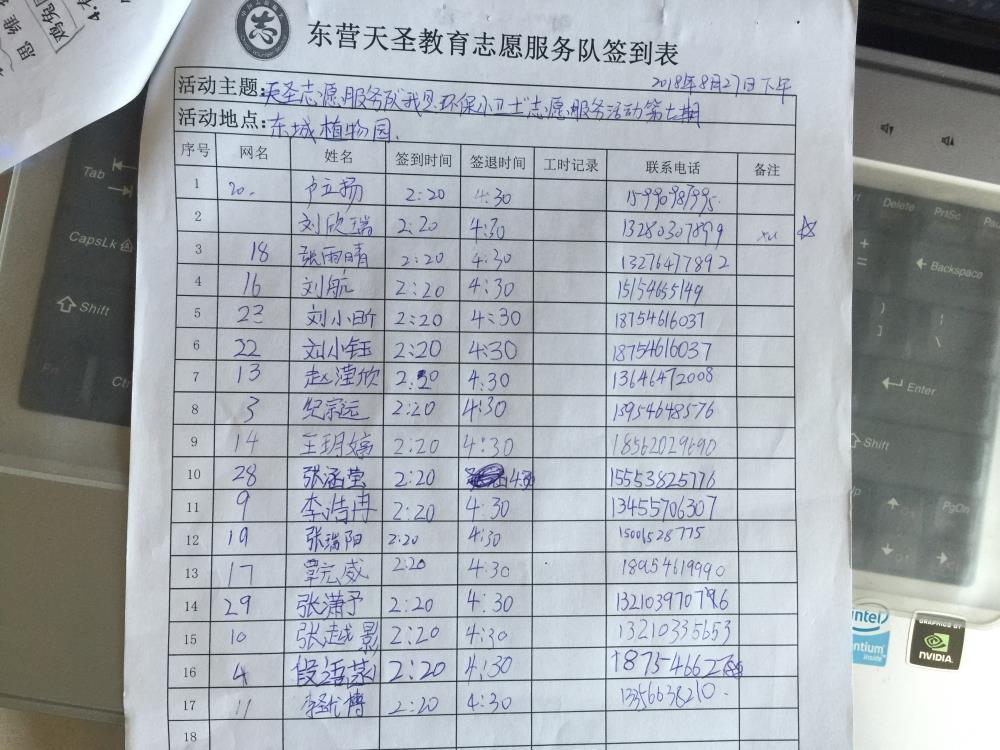 东营天圣教育志愿服务队签到表
2018年8月27日下午
活动主题:天圣志愿服务队"我是环保小卫士"志愿服务活动第七期
活动地点:东城植物园.
序号 网名 姓名 签到时间 签退时间 工时记录 联系电话 备注
1 20. 卢立扬 2:20 4:30
2 刘欣瑞 2:20 4:30 13280307899
3 18 张雨晴 2:20 4:30 13276477892
4 16 刘航 2:20 4:30 15154655149
5 23 刘小昕 2:20 4:30 18754616037
6 22 刘小钰 2:20 4:30 18754616037
7 13 赵滢欣 2:20 4:30 13646472008
8 3 纪宗远 2:20 4:30 13954648576
9 14 王玥婷 2:20 4:30 18562029690
10 28 张涵莹 2:20 4:30 15553825776
11 9 李浩冉 2:20 4:30 13455706307
12 19 张瑞阳 2:20 4:30 15001528775
13 17 2:20 4:30 18954619990
14 29 张潇予 2:20 4:30
15 10 张越影 2:20 4:30 13210335653
16 4 2:20 4:30
17 11 2:20 4:30 13356638210.
18
Tab
CapsLk
Shift
Fn
Ctrl
Delete
PrtSc
Backspace
Enter
Shift
PgDn
intel
pentium
inside
GRAPHICS BY
NVIDIA
思维
鸡兔